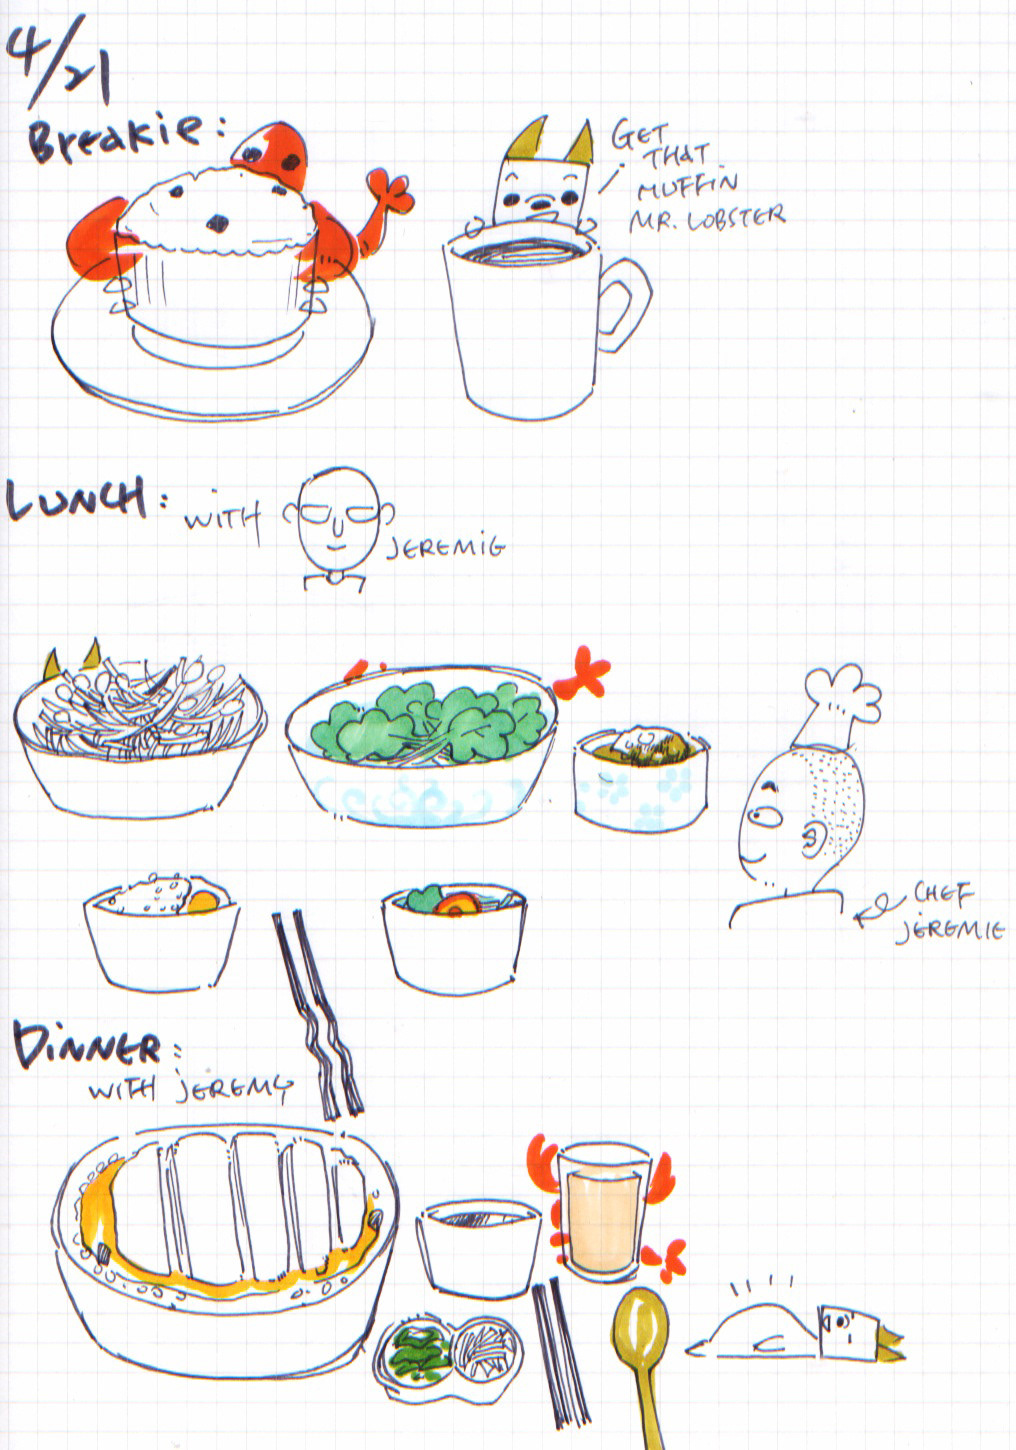 4/21
Breakie:
GET
THAT
MUFFIN
MR. LOBSTER
LUNCH: WITH
JEREMIE
CHEF
JEREMIE
DINNER:
WITH JEREMY